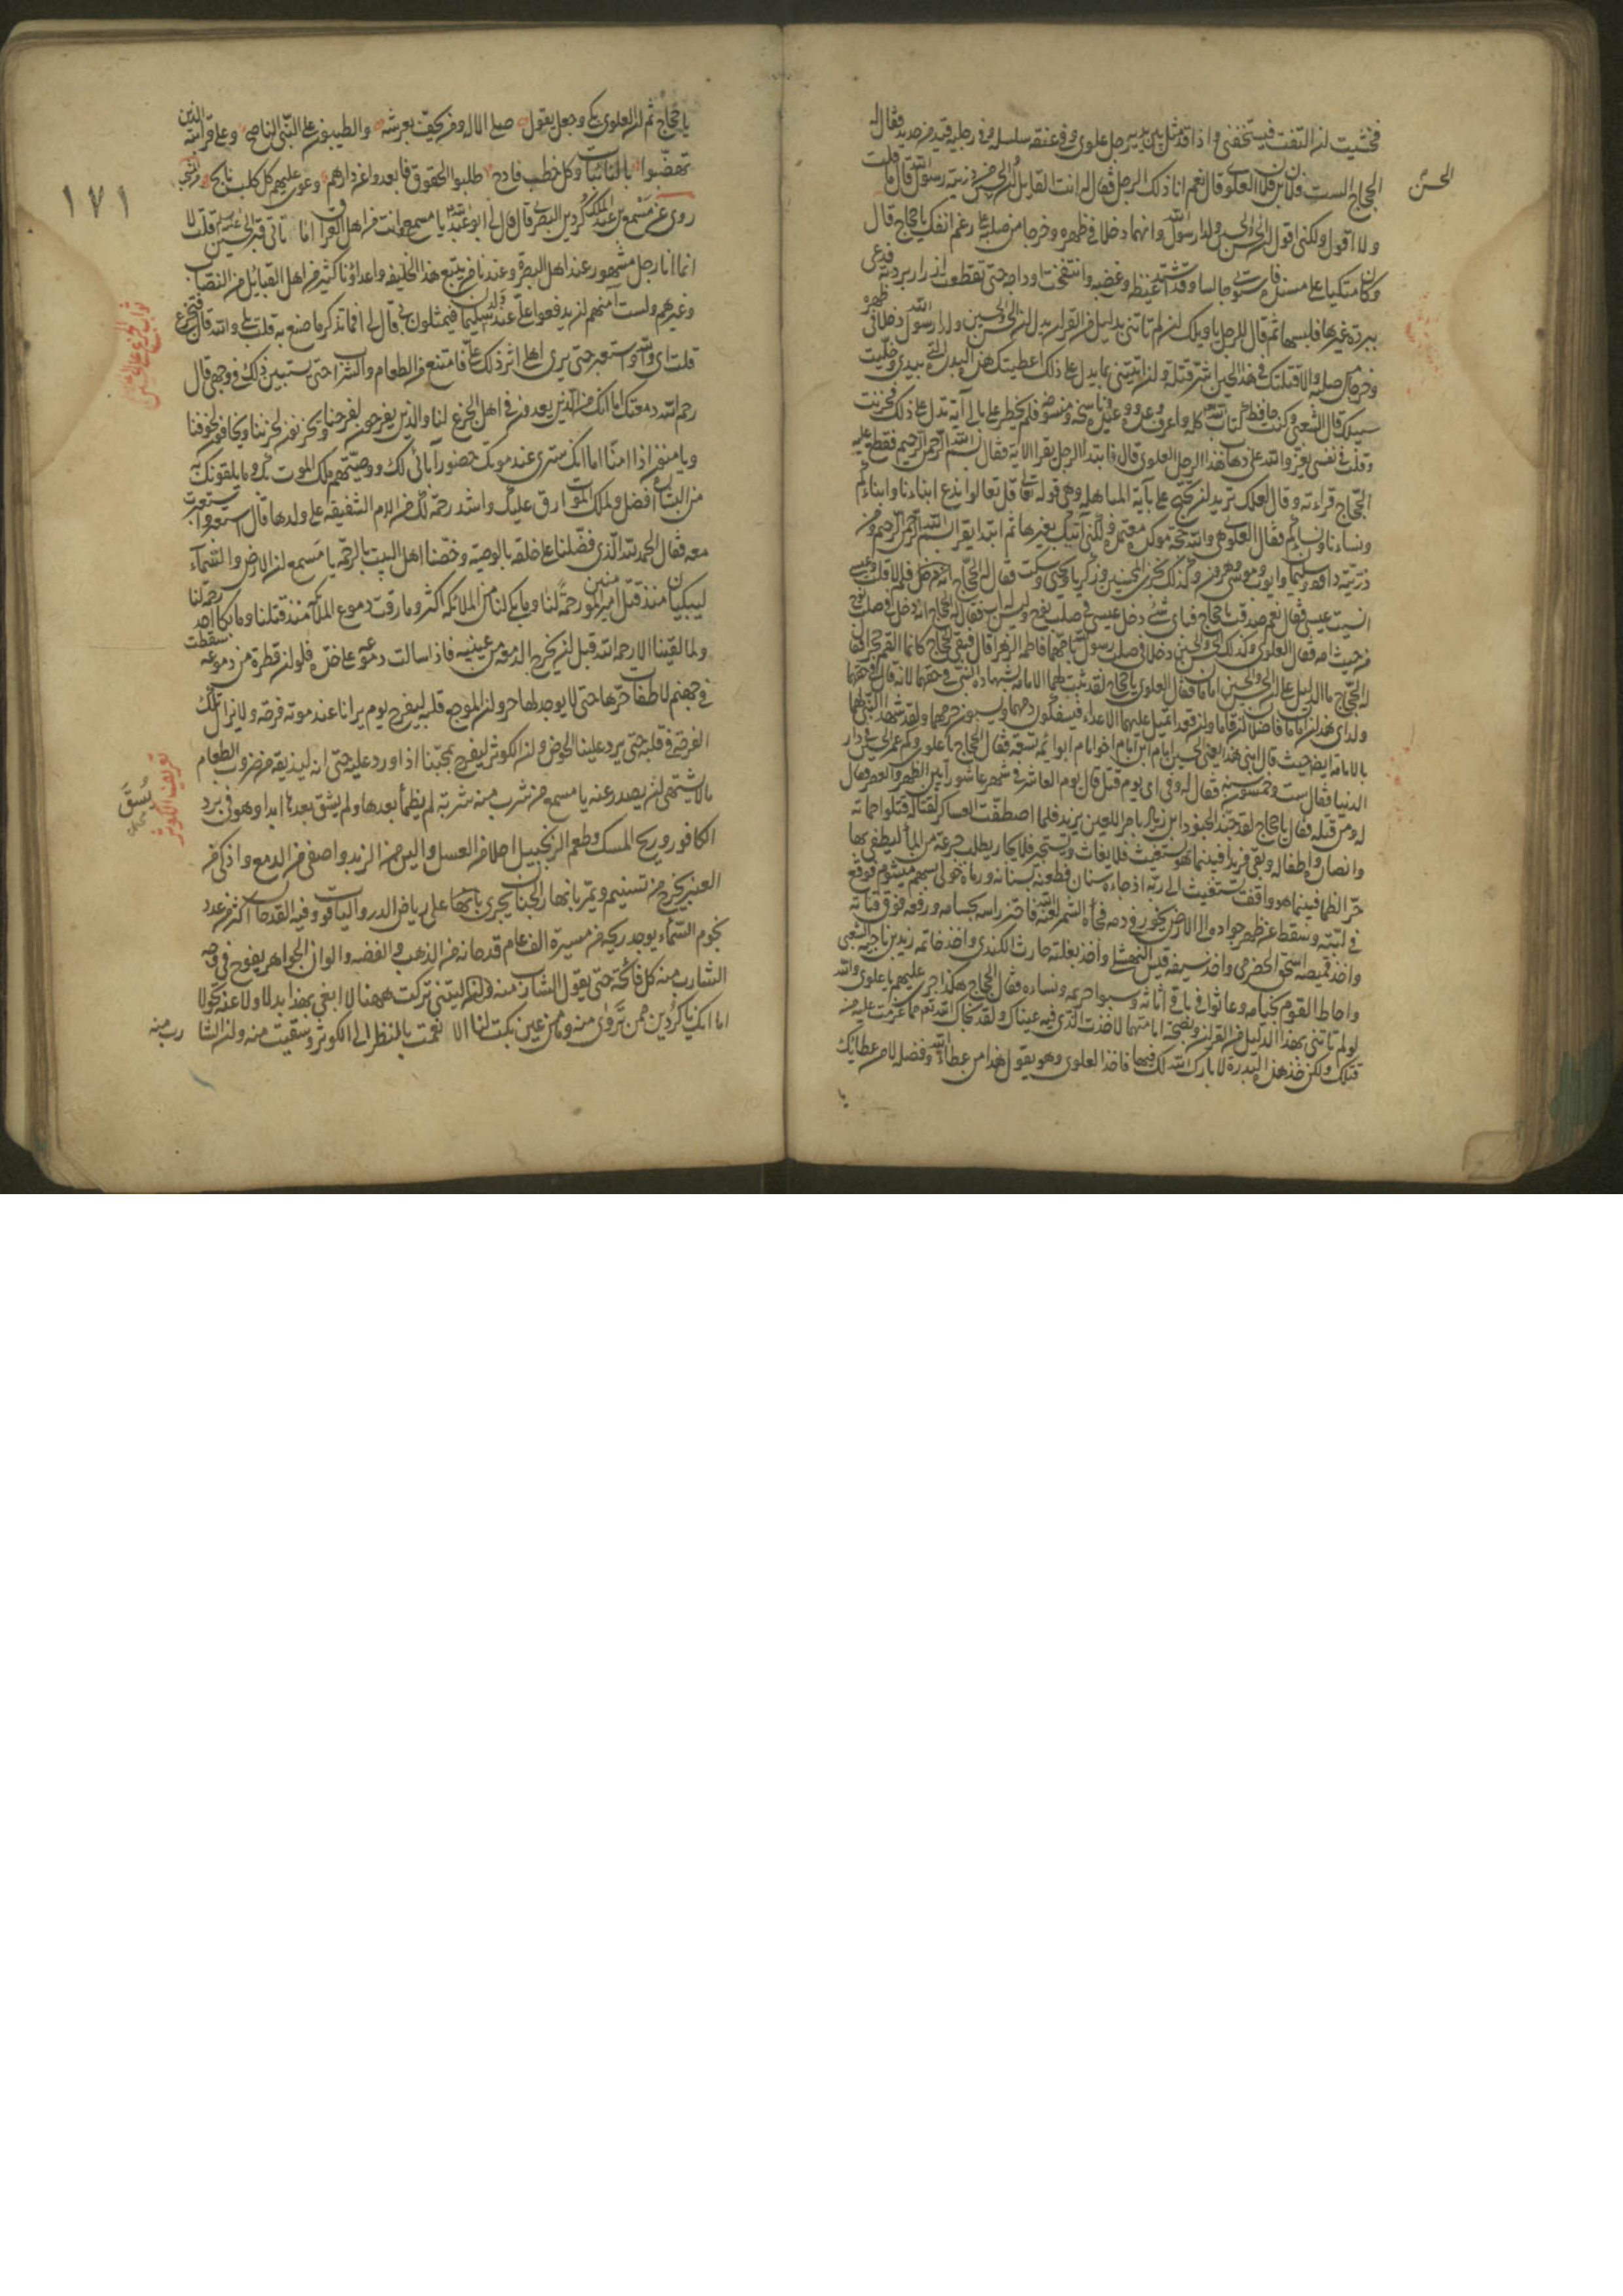 فخشيت ان التفت فيستخفني واذا قد مثل بين يديه رجل علوي وفي عنقه سلسله وفي رجليه قيد من حديد فقال له
الحجاج الست فلان بن فلان العلوي قال نعم انا ذلك الرجل فقال له انت القايل ان الحسن والحسين من ذرية رسول الله قال ما قلت
الحسن
ولا اقول ولكني اقول ان الحسن والحسين ولدا رسول الله وانهما دخلا في ظهره وخرجا من صلبه على رغم انفك يا حجاج قال
وكان متكيا على مسنده فاستوى جالسا وقد اشتد غيظه وغضبه وانتفخت اوداجه حتى تقطعت ازرار بردته فدعى
ببردة غيرها فلبسها ثم قال للرجل يا ويلك ان لم تاتني بدليل من القران يدل ان الحسن والحسين ولدا رسول الله دخلا في ظهره
وخرجا من صلبه والا قتلتك في هذا الحين اشر قتلة وان اتيتني بما يدل على ذلك اعطيتك هذه البدرة التي بيدي وخليت
سبيلك قال الشعبي وكنت حافظا كتاب الله كله واعرف وعده ووعيده وناسخه ومنسوخه فلم يخطر على بالي آية تدل على ذلك فحزنت
وقلت في نفسي يعز والله علي ذهاب هذا الرجل العلوي قال فابتدا الرجل يقرا الاية فقال بسم الله الرحمن الرحيم فقطع عليه
الحجاج قراءته وقال لعلك تريد ان تحتج علي بآية المباهله وهي قوله تعالى قل تعالوا ندع ابناءنا وابناءكم
ونساءنا ونساءكم فقال العلوي هي والله حجة موكدة معتمدة ولكني آتيك بغيرها ثم ابتدا يقرا بسم الله الرحمن الرحيم ومن
ذريته داود وسليمان وايوب ويوسف وموسى وهرون وكذلك نجزي المحسنين وزكريا ويحيى وسكت فقال له الحجاج فلم لا قلت وعيسى
انسيت عيسى فقال نعم صدقت يا حجاج فباي شيء دخل عيسى في صلب نوح وليس له اب فقال له الحجاج انه دخل في صلب نوح
من حيث امه فقال العلوي وكذلك الحسن والحسين دخلا في صلب رسول الله بامهما فاطمة الزهرا قال فبقي الحجاج كانما القم حجرا فقال
له الحجاج ما الدليل على ان الحسن والحسين امامان فقال العلوي يا حجاج لقد ثبتت لهما الامامة بشهادة النبي في حقهما لانه قال في حقهما
ولداي هذان امامان فاضلان ان قاما وان قعدا تميل عليهما الاعداء فيسفكون دمهما ويسبون حرمهما ولقد شهد النبي لهما
بالامامة ايضا حيث قال ابني هذا يعني الحسين امام ابن امام اخو امام ابو ائمة تسعة فقال الحجاج يا علوي وكم عمر الحسين في دار
الدنيا فقال ست وخمسون سنة فقال له وفي اي يوم قتل قال يوم العاشر في شهر عاشورا بين الظهر والعصر فقال
له ومن قتله فقال يا حجاج لقد جند الجنود ابن زياد بامر اللعين يزيد فلما اصطفت العساكر لقتاله قتلوا حماته
وانصاره واطفاله وبقي فريدا فبينما هو يستغيث فلا يغاث ويستجير فلا يجار يطلب جرعة من الماء ليطفي بها
حر الظما فبينما هو واقف يستغيث الى ربه اذ جاءه سنان فطعنه بسنانه ورماه خولي بسهم ميشوم فوقع
في لبته وسقط عن ظهر جواده الى الارض يخور في دمه فجاءه الشمر لعنه الله فاحتز راسه بحسامه ورفعه فوق قناته
واخذ قميصه اسحق الحضرمي واخذ سيفه قيس النهشلي واخذ بغلته حارث الكندي واخذ خاتمه زيد بن ناجية الشعبي
واحاط القوم بخيامه وعاثوا في باقي اثاثه وسبوا حريمه ونساءه فقال الحجاج هكذا جرى عليهم يا علوي والله
لو لم تاتني بهذا الدليل من القران وبصحة امامتهما لاخذت الذي فيه عيناك ولقد نجاك الله تعالى مما عزمت عليه من
قتلك ولكن خذ هذه البدرة لا بارك الله لك فيها فاخذها العلوي وهو يقول هذا من عطاء الله وفضله لا من عطائك
يا
١٧١
يا حجاج ثم ان العلوي بكى وجعل يقول صلى الاله ومن يحف بعرشه والطيبون على النبي الناصح وعلى قرابته الذين
تهضبوا بالنائبات وكل خطب فادح طلبوا الحقوق فابعدوا عن دارهم وعوى عليهم كل كلب نابح
روي عن مسمع بن عبد الملك كردين البصري قال قال لي ابو عبد الله يا مسمع انت من اهل العراق اما تاتي قبر الحسين عليه السلام قلت لا
انا رجل مشهور عند اهل البصرة وعندنا من يتبع هذا الخليفه واعداؤنا كثيرة من اهل القبائل من النصاب
وغيرهم ولست امنهم ان يدفعوا علي عند ولد سليمان فيمثلون بي قال لي افما تذكر ما صنع به قلت بلى والله قال فتجزع
ثواب الجزع على الحسين
قلت اي والله واستعبر حتى يرى اهلي اثر ذلك علي فامتنع من الطعام والشراب حتى يستبين ذلك في وجهي قال
رحم الله دمعتك اما انك من الذين يعدون في اهل الجزع لنا والذين يفرحون لفرحنا ويحزنون لحزننا ويخافون لخوفنا
ويامنون اذا امنا اما انك سترى عند موتك حضور آبائي لك ووصيتهم ملك الموت بك وما يلقونك به
من البشارة افضل ولملك الموت ارق عليك واشد رحمة لك من الام الشفيقه على ولدها قال ثم استعبر واستعبرت
معه فقال الحمد لله الذي فضلنا على خلقه بالوصيه وخصنا اهل البيت بالرحمة يا مسمع ان الارض والسماء
ليبكيان منذ قتل امير المومنين رحمة لنا وما بكى لنا من الملائكه اكثر وما رقت دموع الملائكة منذ قتلنا وما بكا احد رحمة لنا
ولما لقينا الا رحمه الله قبل ان يخرج الدمعه من عينيه فاذا سالت دموعه على خده فلو ان قطرة من دموعه سقطت
في جهنم لاطفات حرها حتى لا يوجد لها حر وان الموجع قلبه ليفرح يوم يرانا عند موته فرحة ولا يزال تلك
الفرحة في قلبه حتى يرد علينا الحوض وان الكوثر ليفرح بمحبنا اذا ورد عليه حتى انه ليذيقه من ضروب الطعام
تعريف الكوثر
ما لا يشتهي ان يصدر عنه يا مسمع من شرب منه شربة لم يظمأ بعدها ولم يشق بعدها ابدا وهو في برد
الكافور وريح المسك وطعم الزنجبيل احلا من العسل والين من الزبد واصفى من الدمع واذكى من
العنبر يخرج من تسنيم ويمر بانهار الجنان يجري على رياض الدر والياقوت وفيه القدحان اكثر من عدد
نجوم السماء يوجد ريحه من مسيرة الف عام قدحانه من الذهب والفضه والوان الجواهر يفوح في وجه
الشارب منه كل فائحة حتى يقول الشارب منه ليتني تركت ههنا لا ابغي بهذا بدلا ولا عنه تحولا
اما انك يا كردين ممن تروى منه وما من عين بكت لنا الا نعمت بالنظر الى الكوثر وسقيت منه وان الشارب منه